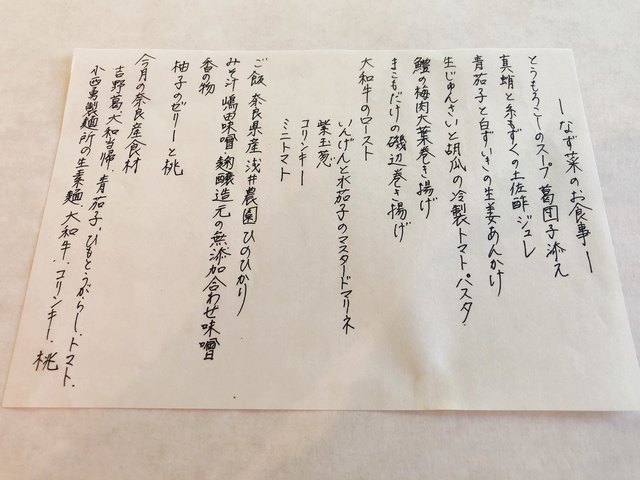 ーなず菜のお食事ー
とうもろこしのスープ 葛団子添え
真蛸と糸もずくの土佐酢ジュレ
青茄子と白ずいきの生姜あんかけ
生じゅんさいと胡瓜の冷製トマトパスタ
鱧の梅肉大葉巻き揚げ
まこもだけの磯辺巻き揚げ
大和牛のロースト
いんげんと水茄子のマスタードマリネ
紫玉葱
コリンキー
ミニトマト
ご飯 奈良県産 浅井農園 ひのひかり
みそ汁 嶋田味噌・麹醸造元の無添加合わせ味噌
香の物
柚子のゼリーと桃
今月の奈良産食材
吉野葛、大和当帰、青茄子、ひもとうがらし、トマト、
小西勇製麺所の生素麺、大和牛、コリンキー、桃